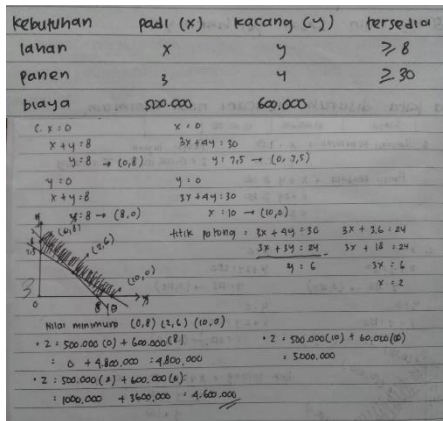 Kebutuhan padi (x) kacang (y) tersedia
lahan x y ≥ 8
panen 3 4 ≥ 30
biaya 500.000 600.000
C. x = 0 x = 0
x + y = 8 3x + 4y = 30
y = 8 → (0,8) y = 7,5 → (0, 7,5)
y = 0 y = 0
x + y = 8 3x + 4y = 30
x = 8 → (8,0) x = 10 → (10,0)
titik potong = 3x + 4y = 30 3x + 3.6 = 24
3x + 3y = 24 - 3x + 18 = 24
y = 6 3x = 6
x = 2
(0,8)
(2,6)
(10,0)
7,5
0 8 10 x
Nilai minimum (0,8) (2,6) (10,0)
• Z = 500.000 (0) + 600.000 (8) • Z = 500.000 (10) + 60,000 (0)
= 0 + 4.800.000 = 4.800.000 = 5000.000
• Z = 500.000 (2) + 600.000 (6)
= 1000.000 + 3600.000 = 4.600.000